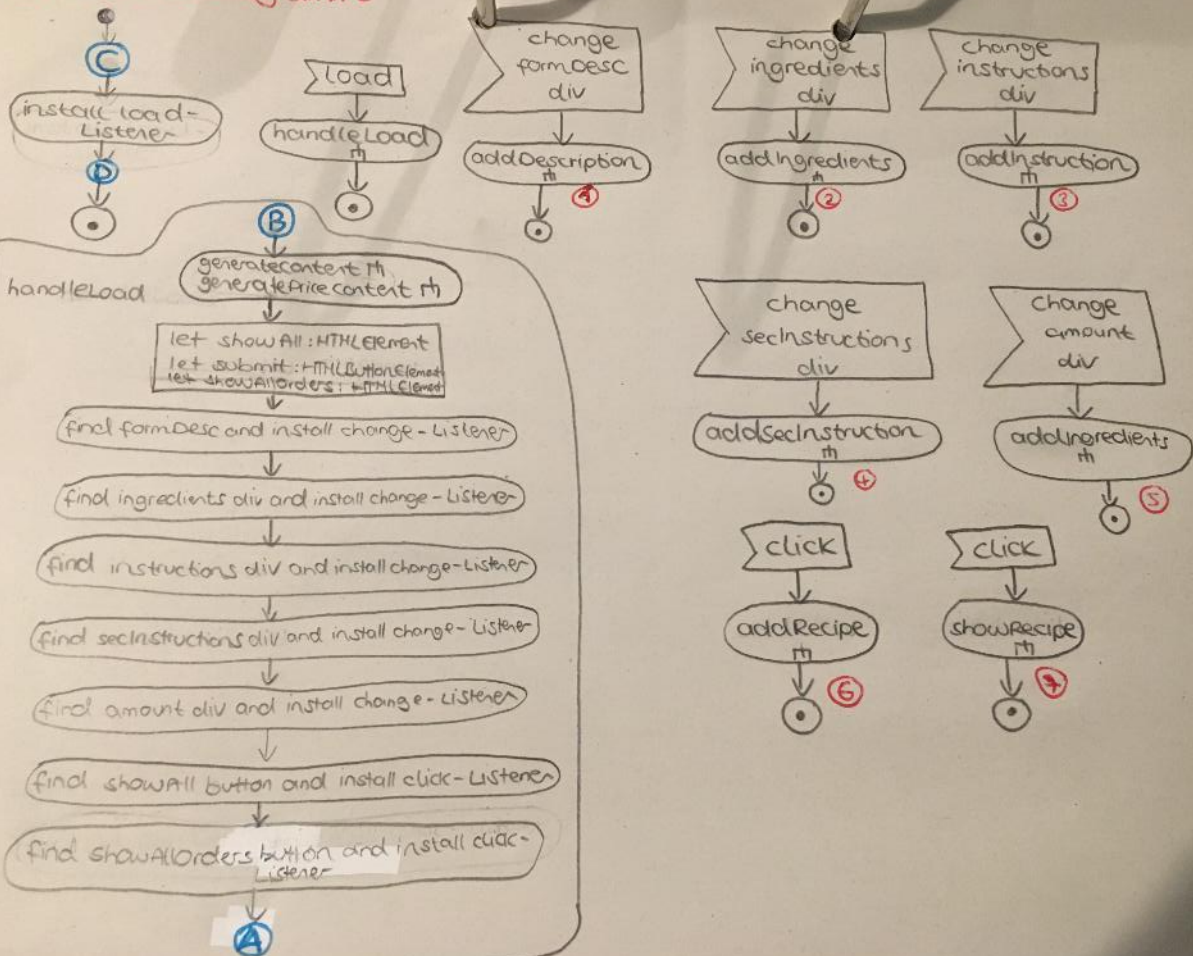 C
install load-
Listener
D
load
handleLoad
change
formDesc
div
addDescription
1
change
ingredients
div
addIngredients
2
change
instructions
div
addInstruction
3
B
handleLoad
generatecontent
generatePricecontent
let showAll: HTMLElement
let submit: HTMLButtonElement
let showAllorders: HTMLElement
find formDesc and install change-Listener
find ingredients div and install change-Listener
find instructions div and install change-Listener
find secInstructions div and install change-Listener
find amount div and install change-Listener
find showAll button and install click-Listener
find showAllOrders button and install click-
Listener
A
change
secInstructions
div
addSecInstruction
4
change
amount
div
addIngredients
5
click
addRecipe
6
click
showRecipe
7